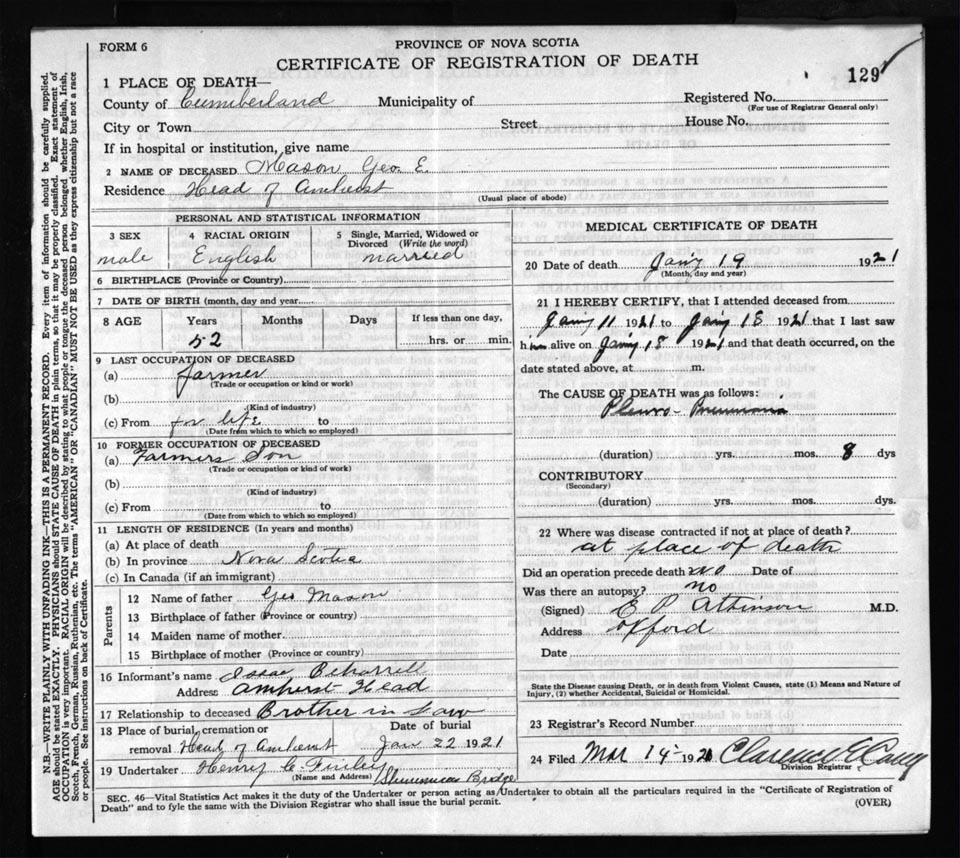 FORM 6
PROVINCE OF NOVA SCOTIA
CERTIFICATE OF REGISTRATION OF DEATH
129
1 PLACE OF DEATH—
County of Cumberland Municipality of
Registered No.
(For use of Registrar General only)
City or Town Street House No.
If in hospital or institution, give name
2 NAME OF DECEASED Mason Geo. E.
Residence Head of Amherst
(Usual place of abode)
PERSONAL AND STATISTICAL INFORMATION
3 SEX male
4 RACIAL ORIGIN English
5 Single, Married, Widowed or Divorced (Write the word) married
6 BIRTHPLACE (Province or Country)
7 DATE OF BIRTH (month, day and year)
8 AGE Years Months Days If less than one day,
52 hrs. or min.
9 LAST OCCUPATION OF DECEASED
(a) farmer
(Trade or occupation or kind or work)
(b)
(Kind of industry)
(c) From for life to
(Date from which to which so employed)
10 FORMER OCCUPATION OF DECEASED
(a) Farmers Son
(Trade or occupation or kind of work)
(b)
(Kind of industry)
(c) From to
(Date from which to which so employed)
11 LENGTH OF RESIDENCE (In years and months)
(a) At place of death
(b) In province Nova Scotia
(c) In Canada (if an immigrant)
Parents
12 Name of father Geo Mason
13 Birthplace of father (Province or country)
14 Maiden name of mother
15 Birthplace of mother (Province or country)
16 Informant's name
Address Amherst Head
17 Relationship to deceased Brother in Law
18 Place of burial, cremation or removal Head of Amherst
Date of burial Jan 22 1921
19 Undertaker Henry C. Finley Bridge
(Name and Address)
MEDICAL CERTIFICATE OF DEATH
20 Date of death Jany 19 1921
(Month, day and year)
21 I HEREBY CERTIFY, that I attended deceased from
Jany 11 1921 to Jany 18 1921 that I last saw
him alive on Jany 18 1921 and that death occurred, on the
date stated above, at m.
The CAUSE OF DEATH was as follows:
Pleuro-Pneumonia
(duration) yrs. mos. 8 dys
CONTRIBUTORY
(Secondary)
(duration) yrs. mos. dys.
22 Where was disease contracted if not at place of death?
at place of death
Did an operation precede death no Date of
Was there an autopsy? no
(Signed) E P Atkinson M.D.
Address Oxford
Date
State the Disease causing Death, or in death from Violent Causes, state (1) Means and Nature of
Injury, (2) whether Accidental, Suicidal or Homicidal.
23 Registrar's Record Number
24 Filed Mar 14 192 Clarence E
Division Registrar
SEC. 46—Vital Statistics Act makes it the duty of the Undertaker or person acting as Undertaker to obtain all the particulars required in the "Certificate of Registration of
Death" and to fyle the same with the Division Registrar who shall issue the burial permit.
(OVER)
N.B.—WRITE PLAINLY WITH UNFADING INK—THIS IS A PERMANENT RECORD. Every item of information should be carefully supplied.
AGE should be stated EXACTLY. PHYSICIANS should STATE CAUSE OF DEATH in plain terms, so that it may be properly classified. Exact statement of
OCCUPATION is very important. RACIAL ORIGIN will be described by stating to what people or tongue the deceased person belonged whether English, Irish,
Scotch, French, German, Russian, Ruthenian, etc. The terms "AMERICAN" OR "CANADIAN" MUST NOT BE USED as they express citizenship but not a race
or people. See instructions on back of Certificate.